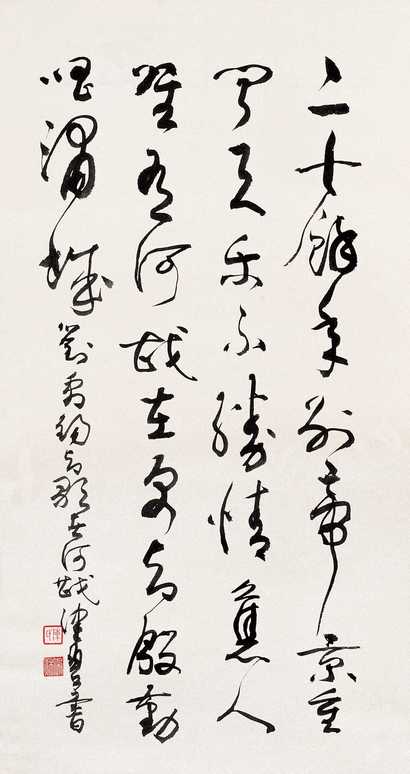 二十餘年別帝京重
聞天樂不勝情舊人
唯有何戡在更與殷勤
唱渭城 劉禹錫與歌者何戡 書